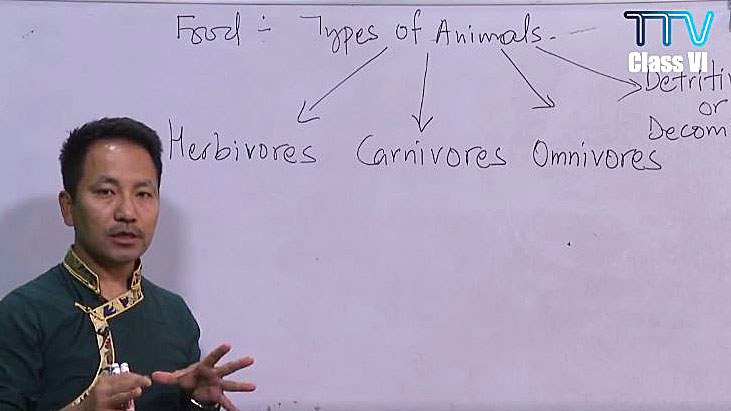 Food :- Types of Animals.
TTV
Class VI
Herbivores Carnivores Omnivores
or